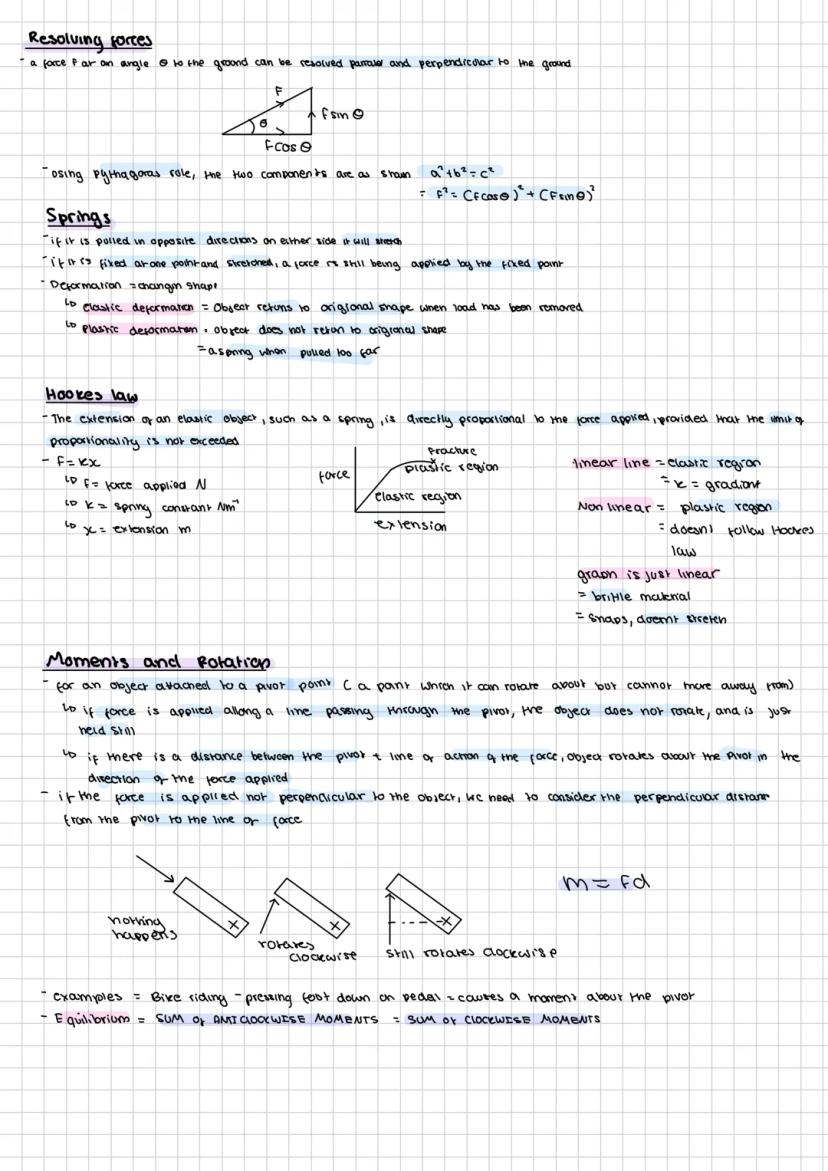 Resolving forces
- a force F at an angle θ to the ground can be resolved parralel and perpendicular to the ground
F
F sin θ
θ
F cos θ
- using pythagoras rule, the two components are as shown a² + b² = c²
= F² = (Fcosθ)² + (Fsinθ)²
Springs
- if it is pulled in opposite directions on either side it will stretch
- if it is fixed at one point and stretched, a force is still being applied by the fixed point
- Deformation = changin shape
↳ elastic deformation = Object retuns to origional shape when load has been removed
↳ Plastic deformation = object does not retun to origional shape
= a spring when pulled too far
Hookes law
- The extension of an elastic object, such as a spring, is directly proportional to the force applied, provided that the limit of
proportionality is not exceeded
- F = kx
↳ F = force applied N
↳ k = spring constant Nm⁻¹
↳ x = extension m
force
fracture
plastic region
elastic region
extension
linear line = elastic region
= k = gradient
Non linear = plastic region
= doesnt follow Hookes
law
graph is just linear
= brittle material
= snaps, doesnt stretch
Moments and Rotation
- for an object attached to a pivot point (a point which it can rotate about but cannot move away from)
↳ if force is applied allong a line passing through the pivot, the object does not rotate, and is just
held still
↳ if there is a distance between the pivot + line of action of the force, object rotates about the pivot in the
direction of the force applied
- if the force is applied not perpendicular to the object, we need to consider the perpendicular distance
from the pivot to the line of force
m = Fd
nothing
happens
rotates
clockwise
still rotates clockwise
- examples = Bike riding - pressing foot down on pedal = causes a moment about the pivot
- Equilibrium = SUM of ANTICLOCKWISE MOMENTS = SUM OF CLOCKWISE MOMENTS